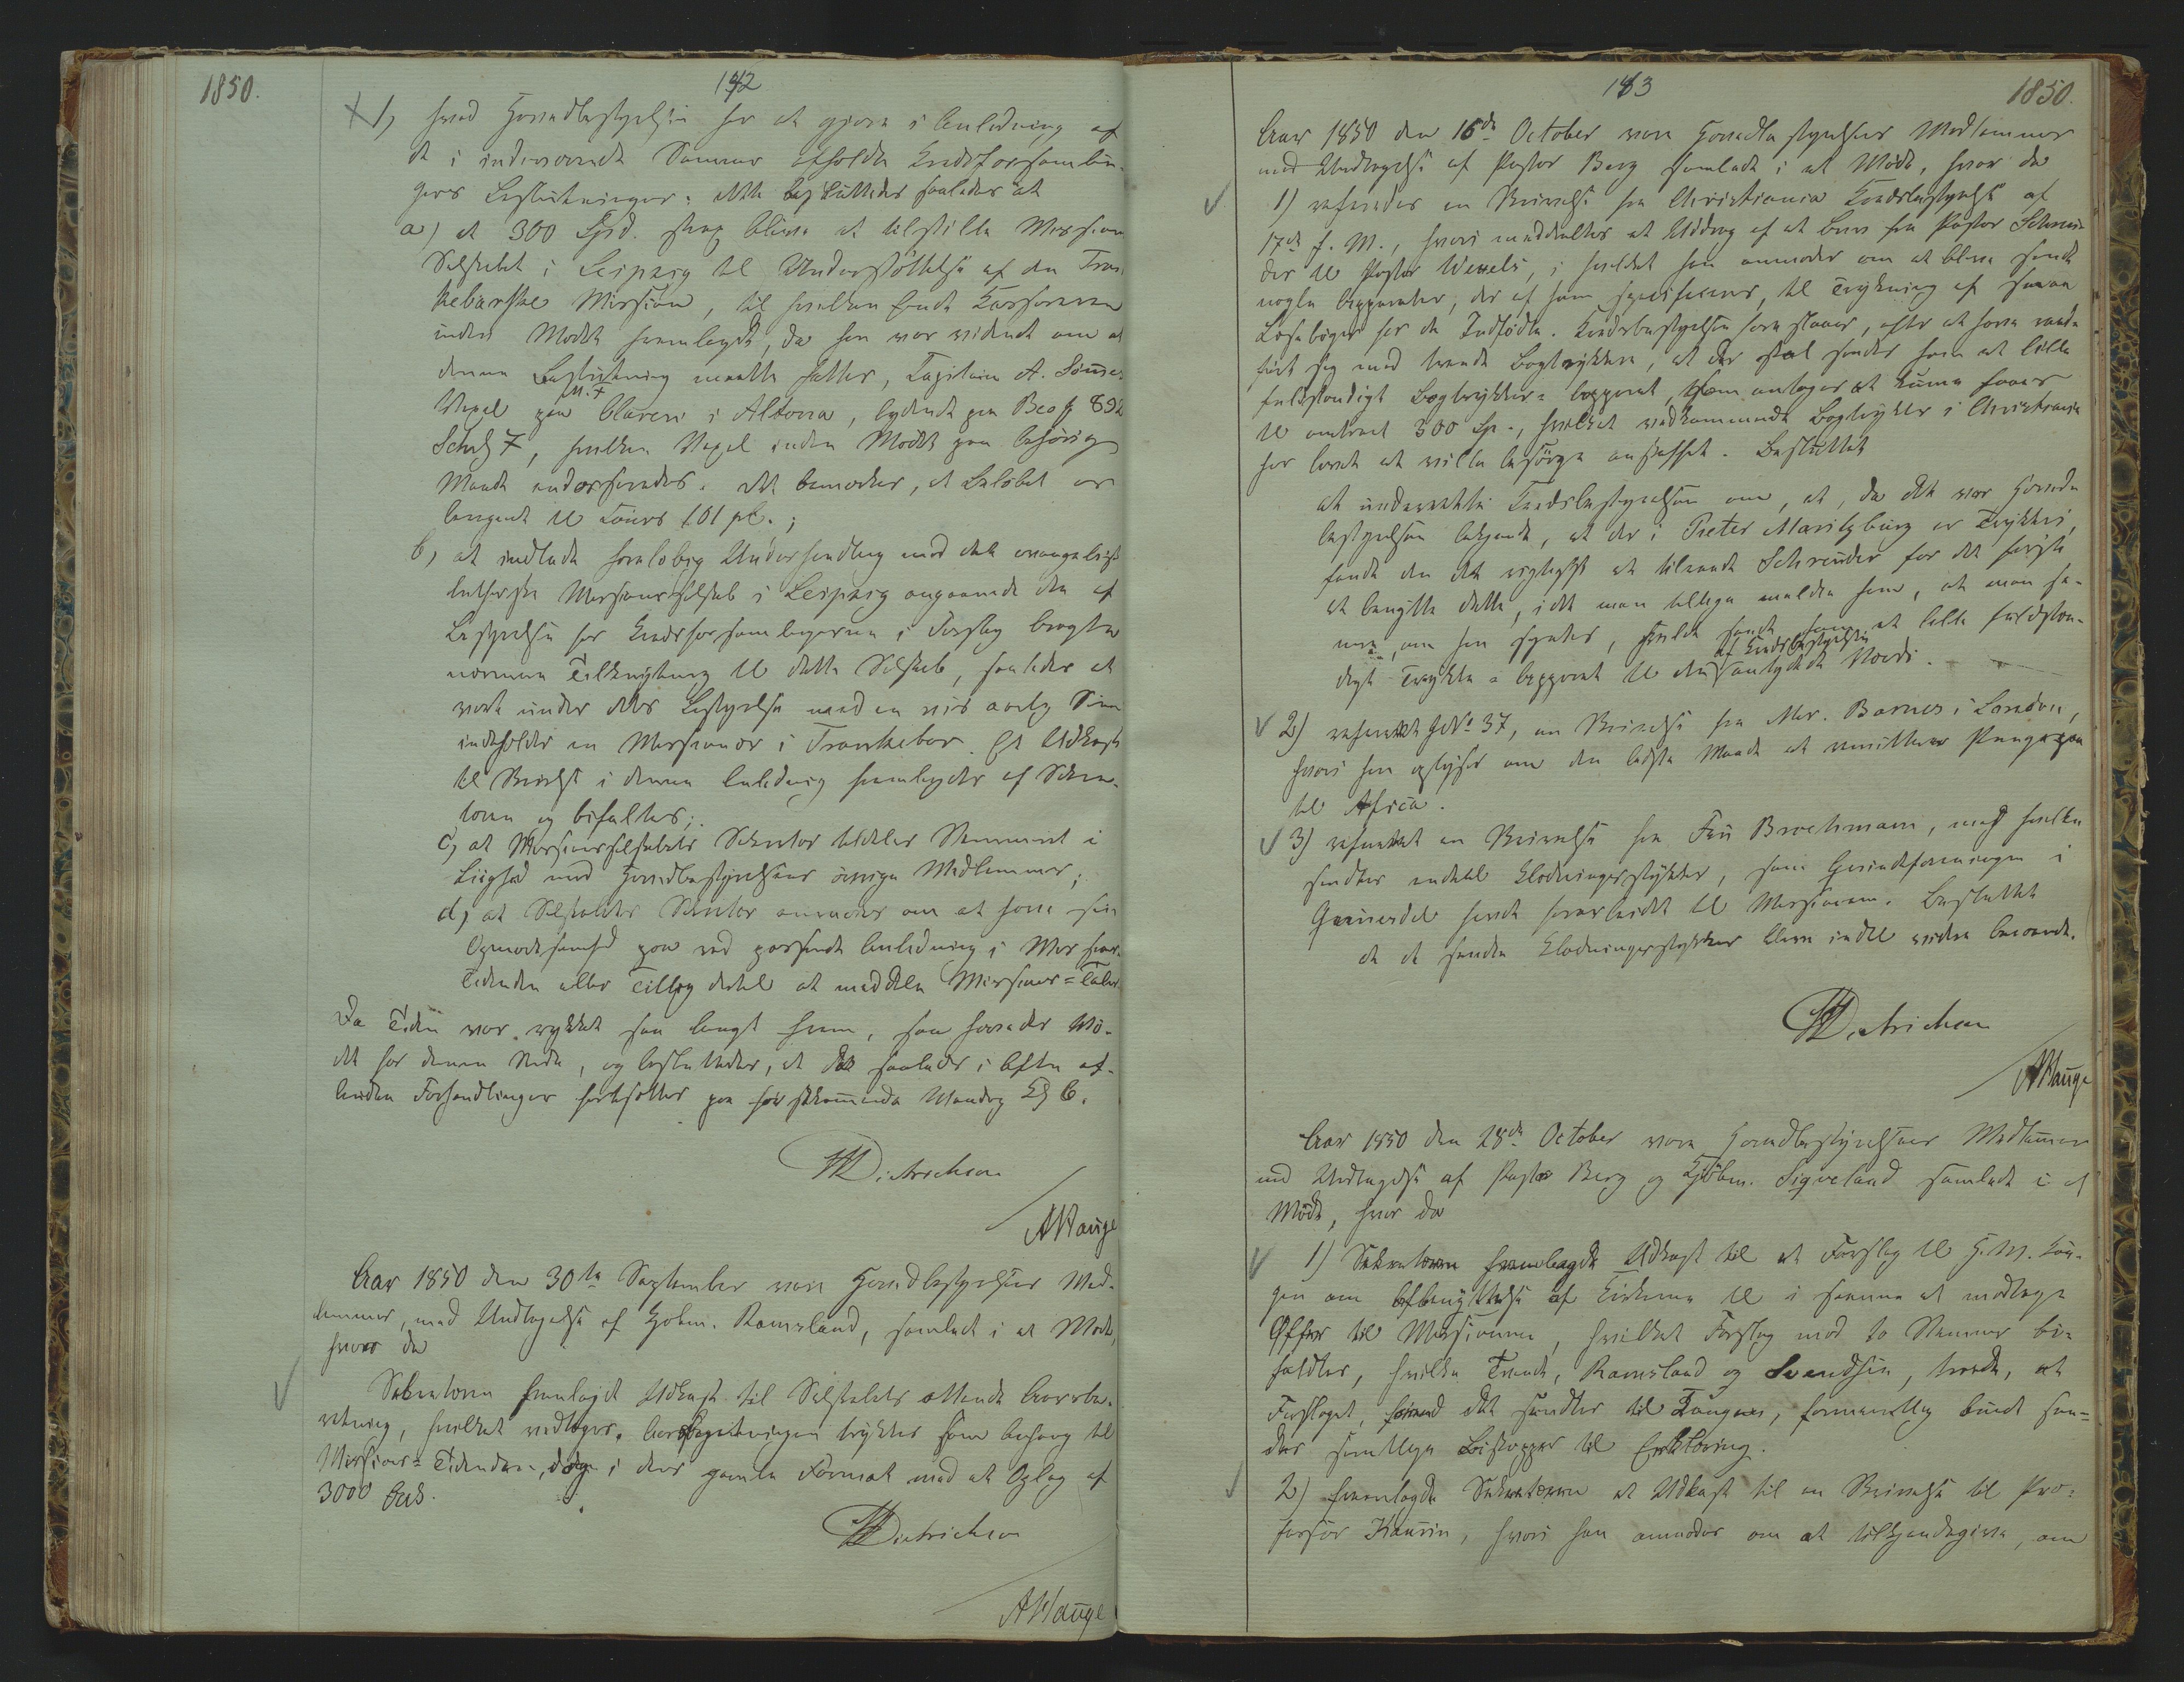 1850.
142
1, hvad Hovedbestyrelsen har at gjøre i Anledning af
de i indeværende Sommer afholdte Kredsforsamlin-
gers Beslutninger: dette besluttedes saaledes at
a) at 300 Spd. strax blive at tilstille Missions
Selskabet i Leipzig til Understøttelse af den Tran-
kebarske Mission, til hvilken Ende Kassereren
inden Mødet fremlagde, da han var vidende om at
denne Beslutning maatte fattes, Capitain A. Sømes
Vexel paa Claren i Altona, lydende paa Bco ℔ 892
Schl 7, hvilken Vexel inden Mødet paa behørig
Maade endosseredes. Det bemærkes, at Beløbet er
beregnet til Cours 101 pC.;
b, at indlede foreløbig Underhandling med det evangelisk
lutherske Missionsselskab i Leipzig angaaende den af
Bestyrelsen for Kredsforsamlingerne i Forslag bragte
nærmere Tilknytning til dette Selskab, saaledes at
vort under dets Bestyrelse med en vis aarlig Sum
indeholder en Missionær i Trankebar. Et Udkast
til Brevet i denne Anledning fremlagdes af Sekre-
tæren og bifaldtes;
c, at Missionsselskabets Sekretær tildeles Stemmeret i
Liighed med Hovedbestyrelsens øvrige Medlemmer;
d, at Selskabets Sekretær anmodes om at have sin
Opmærksomhed paa ved passende Anledning i Missions-
Tidenden eller Tillæg dertil at meddele Missions-Taler.
Da Tiden var rykket saa langt frem, saa hævedes Mø-
det for denne Sinde, og besluttedes, at de saaledes i Aften af-
brudte Forhandlinger fortsættes paa førstkommende Mandag Kl 6.
Dietrichson
AHauge
Aar 1850 den 30te September vare Hovedbestyrelsens Med-
lemmer, med Undtagelse af Kjøbm. Ramsland, samlede i et Møde,
hvor da
Sekretæren fremlagde Udkast til Selskabets ottende Aarsbe-
retning, hvilket vedtoges. Aarsberetningen trykkes som Anhang til
Missions-Tidenden, dog i dens gamle Format med et Oplag af
3000 Expl.
Dietrichson
AHauge
143
1850.
Aar 1850 den 16de October vare Hovedbestyrelsens Medlemmer
med Undtagelse af Pastor Berg samlede i et Møde, hvor da
1) refereredes en Skrivelse fra Christiania Kredsbestyrelse af
17de f. M., hvori meddeeltes et Uddrag af et Brev fra Pastor Schreu-
der til Pastor Wexels, i hvilket han anmoder om at blive sendt
nogle Apparater, der af ham specificeres, til Trykning af smaae
Læsebøger for de Indfødte. Kredsbestyrelsen foreslaaer, efter at have raad-
ført sig med tvende Bogtrykkere, at der skal sendes ham et lille
fuldstændigt Bogtrykker-Apparat, som antages at kunne faaes
til omtrent 300 Sp., hvilket vedkommende Bogtrykker i Christiania
har lovet at ville besørge anskaffet. Besluttet
at underrette Kredsbestyrelsen om, at, da det var Hoved-
bestyrelsen bekjendt, at der i Pieter Maritzburg er Trykkeri,
fandt den det rigtigst at tilraade Schreuder for det første
at benytte dette, idet man tillige meldte ham, at man se-
nere, om han synes, skulde sende ham et lille fuldstæn-
digt Trykke-Apparat til den af Kredsbestyrelsen antydede Værdi.
2) refereret No 37, en Skrivelse fra Mr. Barnes i London,
hvori han oplyser om den bedste Maade at remittere Penge paa
til Africa.
3) refereret en Skrivelse fra Fru Brochmann, med hvilken
sendtes endeel Klædningsstykker, som Qvindeforeningen i
Gjerrestad havde forarbeidet til Missionen. Besluttet
at de sendte Klædningsstykker bleve indtil videre beroende.
Dietrichson
AHauge
Aar 1850 den 28de October vare Hovedbestyrelsens Medlemmer
med Undtagelse af Pastor Berg og Kjøbm. Sigveland samlede i et
Møde, hvor da
1) Sekretæren fremlagde Udkast til et Forslag til H. M. Kon-
gen om Afbenyttelse af Kirkerne til i samme at modtage
Offer til Missionen, hvilket Forslag mod to Stemmer bi-
faldtes, hvilke Tvende, Ramsland og Svendsen, troede, at
Forslaget, forinden det sendtes til Kongen, formentlig burde sen-
des samtlige Biskopper til Erklæring.
2) fremlagde Sekretæren et Udkast til en Skrivelse til Pro-
fessor Kaurin, hvori han anmodes om at tilkjendegive, om